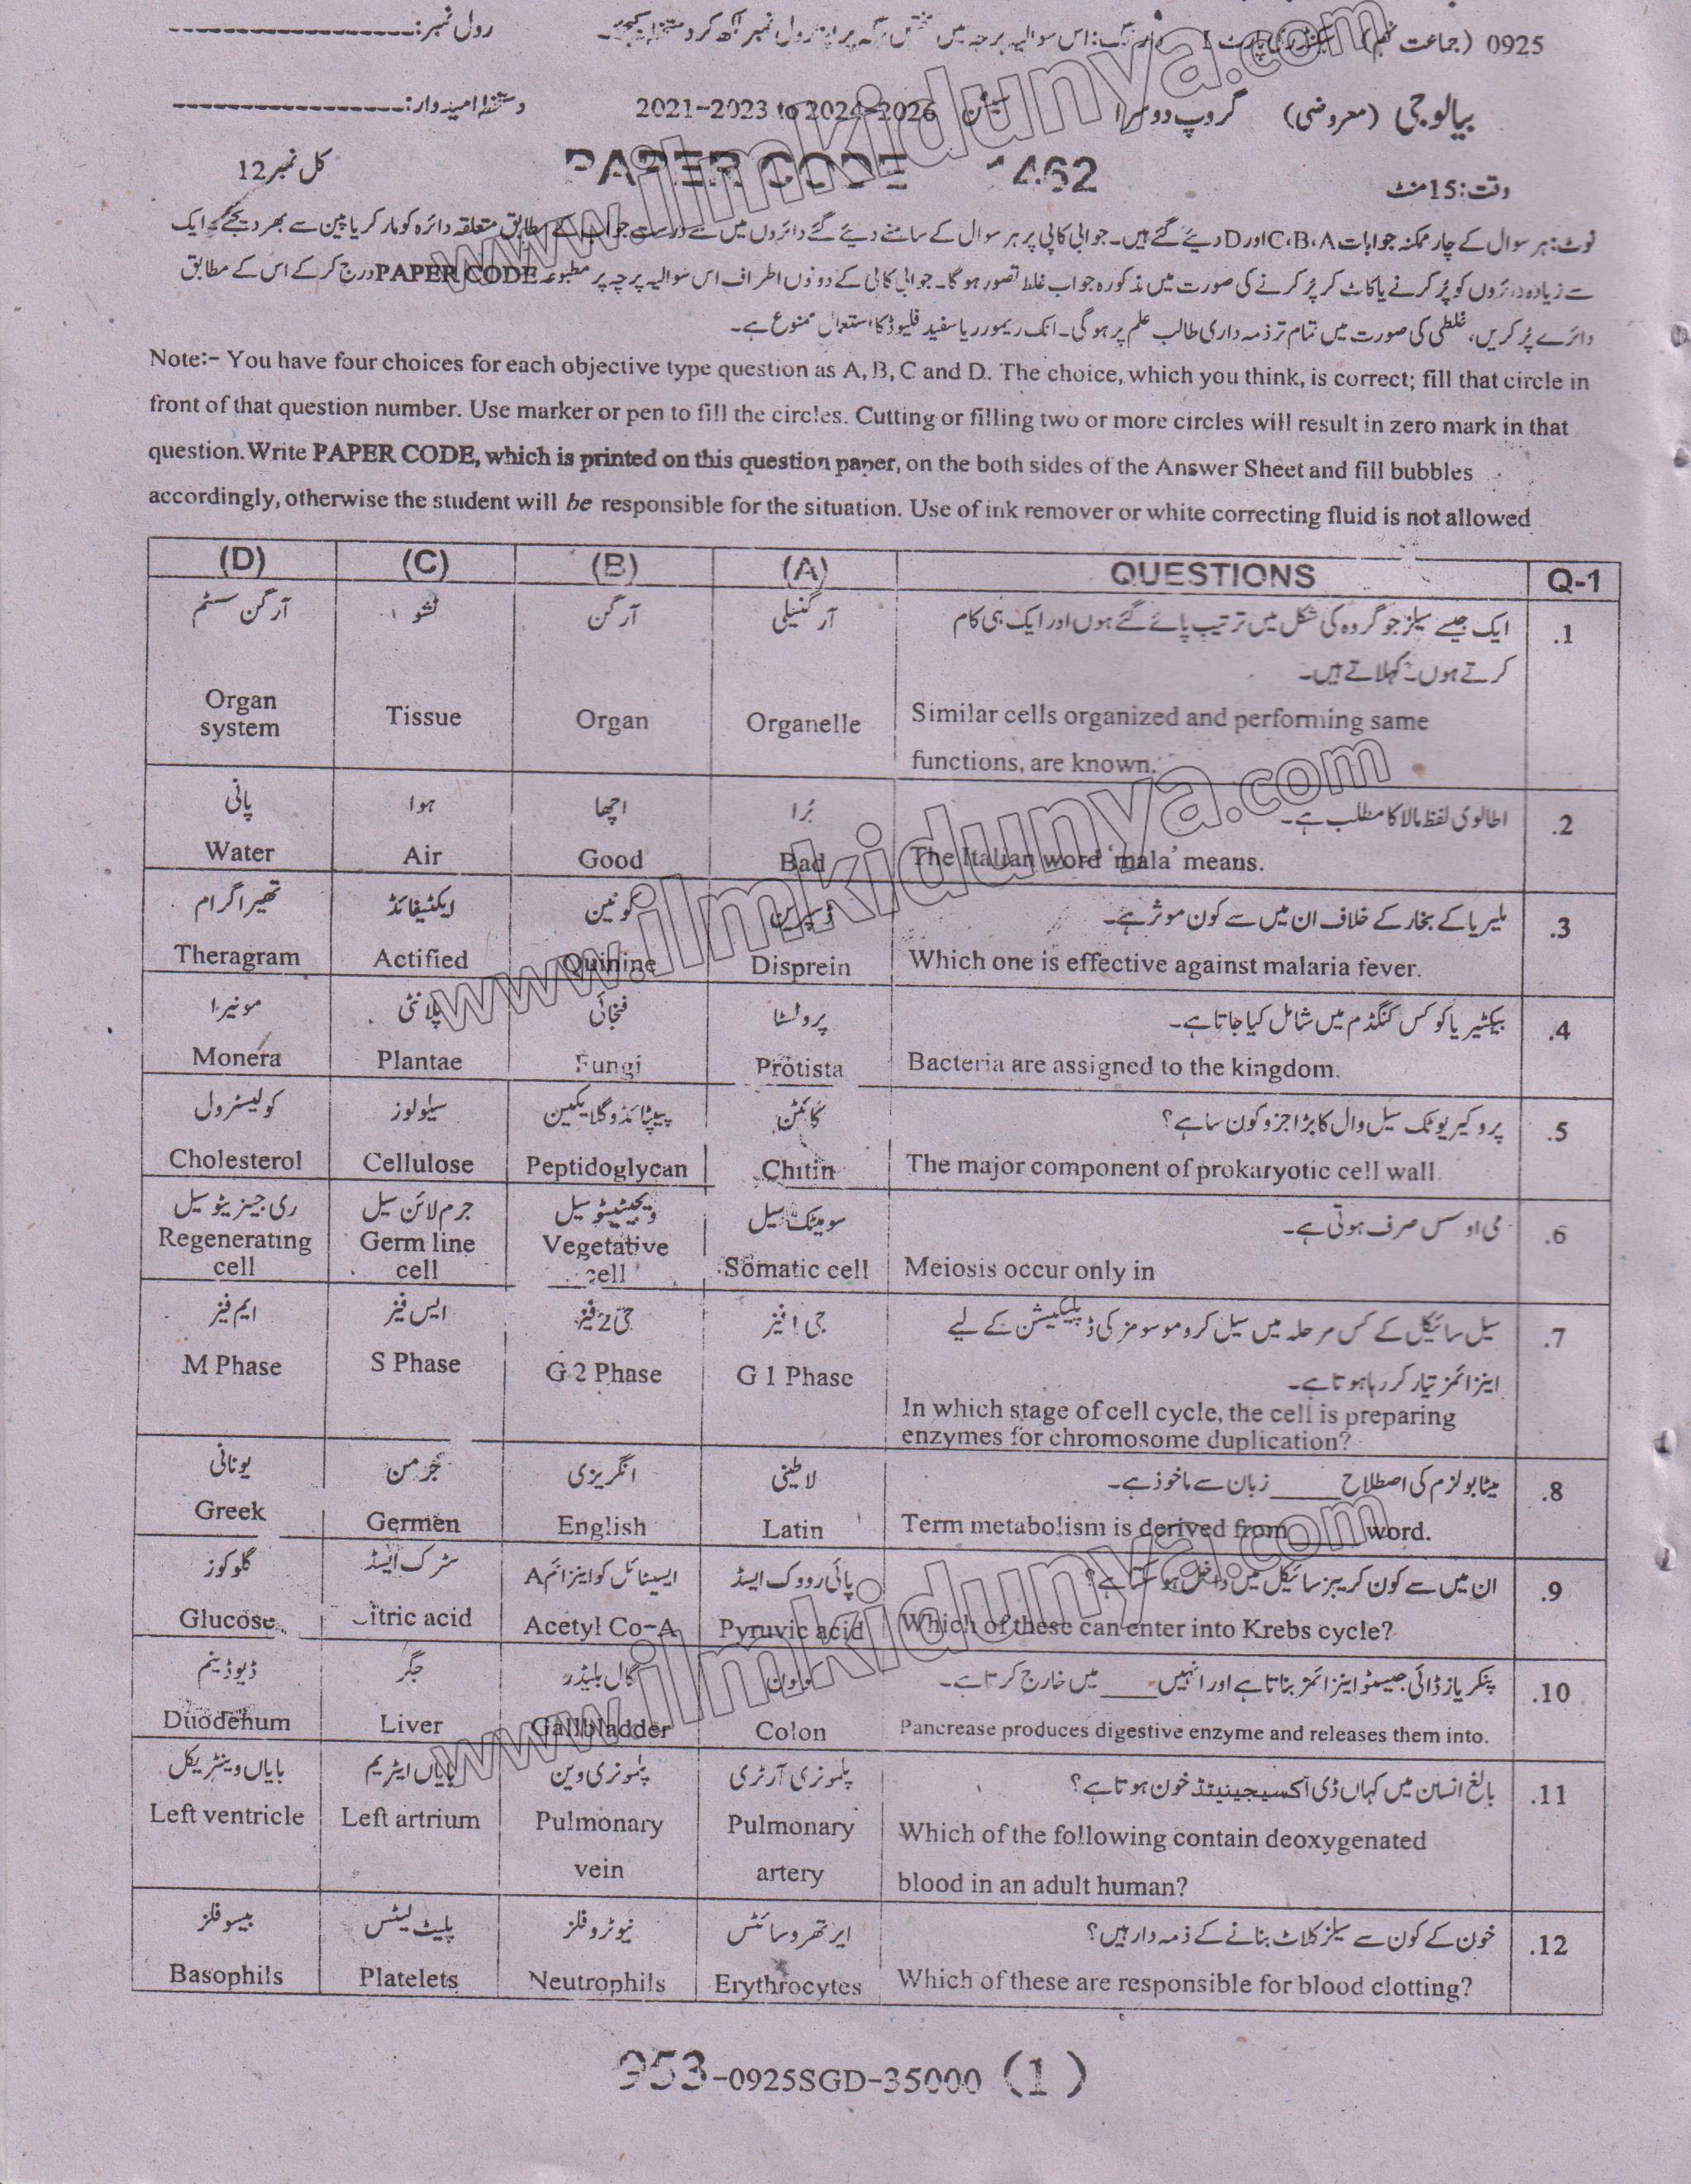 0925 (جماعت نہم) پارٹ I اس سوالیہ پرچہ میں مختص جگہ پر اپنا رول نمبر لکھ کر دستخط کیجیے۔ رول نمبر:
بیالوجی (معروضی) گروپ دوسرا سیشن 2021-2023 to 2024-2026 دستخط امیدوار:
وقت:15منٹ PAPER CODE 1462 کل نمبر12
نوٹ:ہر سوال کے چار ممکنہ جوابات C،B،A اور D دیئے گئے ہیں۔ جوابی کاپی پر ہر سوال کے سامنے دیئے گئے دائروں میں سے درست جواب کے مطابق متعلقہ دائرہ کو مارکر یا پین سے بھر دیجئے۔ ایک
سے زیادہ دائروں کو پُر کرنے یا کاٹ کر پُر کرنے کی صورت میں مذکورہ جواب غلط تصور ہو گا۔ جوابی کاپی کے دونوں اطراف اس سوالیہ پرچہ پر مطبوعہ PAPER CODE درج کر کے اس کے مطابق
دائرے پُر کریں، غلطی کی صورت میں تمام تر ذمہ داری طالب علم پر ہو گی۔ انک ریمور یا سفید فلیوڈ کا استعمال ممنوع ہے۔
Note:- You have four choices for each objective type question as A, B, C and D. The choice, which you think, is correct; fill that circle in
front of that question number. Use marker or pen to fill the circles. Cutting or filling two or more circles will result in zero mark in that
question. Write PAPER CODE, which is printed on this question paper, on the both sides of the Answer Sheet and fill bubbles
accordingly, otherwise the student will be responsible for the situation. Use of ink remover or white correcting fluid is not allowed
(D) (C) (B) (A) QUESTIONS Q-1
.1 ایک جیسے سیلز جو گروہ کی شکل میں ترتیب پائے گئے ہوں اور ایک ہی کام آرگنیلی آرگن ٹشو آرگن سسٹم
کرتے ہوں۔ کہلاتے ہیں۔
Organ system Tissue Organ Organelle Similar cells organized and performing same
functions, are known.
.2 اطالوی لفظ مالا کا مطلب ہے۔ بُرا اچھا ہوا پانی
Water Air Good Bad The Italian word 'mala' means.
.3 ملیریا کے بخار کے خلاف ان میں سے کون موثر ہے۔ ڈسپرین کونین ایکٹیفائڈ تھیراگرام
Theragram Actified Quinine Disprein Which one is effective against malaria fever.
.4 بیکٹیریا کو کس کنگڈم میں شامل کیا جاتا ہے۔ پروٹسٹا فنجائی پلانٹی مونیرا
Monera Plantae Fungi Protista Bacteria are assigned to the kingdom.
.5 پروکیریوٹک سیل وال کا بڑا جزو کون سا ہے؟ کائٹن پیپٹائڈوگلائیکین سیلولوز کولیسٹرول
Cholesterol Cellulose Peptidoglycan Chitin The major component of prokaryotic cell wall.
.6 می اوسس صرف ہوتی ہے۔ سومیٹک سیل ویجیٹیٹو سیل جرم لائن سیل ری جینریٹو سیل
Regenerating cell Germ line cell Vegetative cell Somatic cell Meiosis occur only in
.7 سیل سائیکل کے کس مرحلہ میں سیل کروموسومز کی ڈپلیکیشن کے لیے جی 1 فیز جی 2 فیز ایس فیز ایم فیز
اینزائمز تیار کر رہا ہوتا ہے۔
M Phase S Phase G 2 Phase G 1 Phase In which stage of cell cycle, the cell is preparing
enzymes for chromosome duplication?
.8 میٹابولزم کی اصطلاح ____ زبان سے ماخوذ ہے۔ لاطینی انگریزی جرمن یونانی
Greek Germen English Latin Term metabolism is derived from word.
.9 ان میں سے کون کریبز سائیکل میں داخل ہو سکتا ہے؟ پائی رووک ایسڈ ایسیٹائل کو اینزائم A سٹرک ایسڈ گلوکوز
Glucose Citric acid Acetyl Co-A Pyruvic acid Which of these can enter into Krebs cycle?
.10 پنکریاز ڈائی جیسٹو اینزائمز بناتا ہے اور انہیں ____ میں خارج کرتا ہے۔ کولون گال بلیڈر جگر ڈیوڈینم
Duodenum Liver Gallbladder Colon Pancrease produces digestive enzyme and releases them into.
.11 بالغ انسان میں کہاں ڈی آکسیجینیٹڈ خون ہوتا ہے؟ پلمونری آرٹری پلمونری وین بایاں ایٹریم بایاں وینٹریکل
Left ventricle Left artrium Pulmonary vein Pulmonary artery Which of the following contain deoxygenated
blood in an adult human?
.12 خون کے کون سے سیلز کلاٹ بنانے کے ذمہ دار ہیں؟ ایرتھروسائٹس نیوٹروفلز پلیٹ لیٹس بیسوفلز
Basophils Platelets Neutrophils Erythrocytes Which of these are responsible for blood clotting?
953-0925SGD-35000 (1)
www.ilmkidunya.com
www.ilmkidunya.com
www.ilmkidunya.com